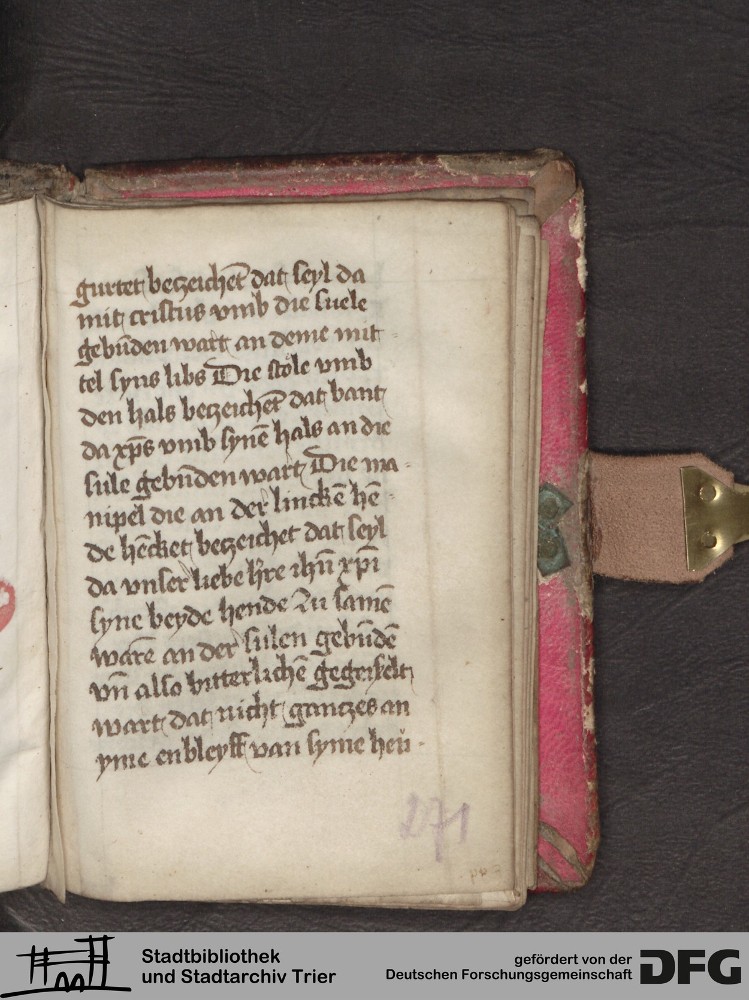 gurtet betzeichēt dat seyl da
mit cristus vmb die suele
gebūden wart an deme mit
tel syns libs Die stole vmb
den hals betzeichēt dat bant
da xp̄s vmb synē hals an die
sule gebūden wart Die ma-
nipel die an der linckē hē-
de hēcket betzeichet dat seyl
da vnser liebe h're ihū xp̄i
syne beyde hende zu samē
warē an der sulen gebūdē
vn̄ also bitterlichē gegeiselt
wart dat nicht gantzes an
yme enbleyff van syme heu-
271
Stadtbibliothek
und Stadtarchiv Trier
gefördert von der
Deutschen Forschungsgemeinschaft
DFG